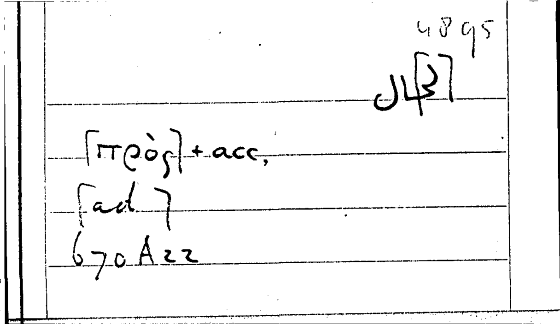 4895
⌈πρὸς⌉ + acc.
⌈ad⌉
670A22